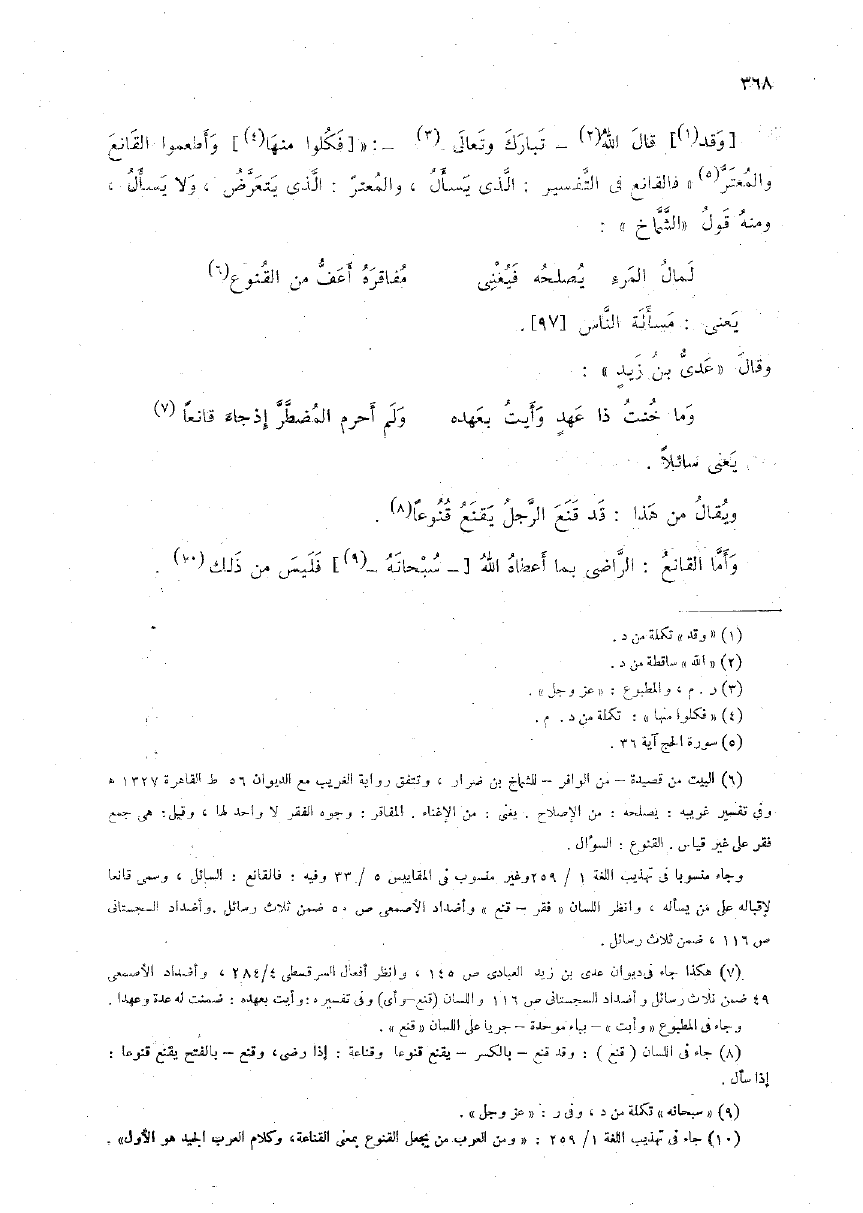 ٣٦٨
[وَقد(١)] قالَ اللهُ(٢) ــ تَبارَكَ وتَعالَى (٣) ــ : « [فَكُلوا منهَا(٤)] وَأَطعموا القَانعَ
والمُعتَرَّ(٥) » فالقانع فى التَّفسير : الَّذى يَسأَلُ ، والمُعترّ : الَّذى يَتعَرَّضُ ، وَلا يَسأَلُ ،
ومنهُ قَولُ «الشَّمَّاخ » :
لَمالُ المَرءِ يُصلحُه فَيُغْنِى مُفاقرَهُ أَعَفُّ من القُنوع(٦)
يَعنى : مَسأَلَة النَّاس [٩٧] .
وقالَ «عَدىُّ بنُ زَيدٍ » :
وَما خُنتُ ذا عَهدٍ وَأَيتُ بعَهده وَلَم أَحرم المُضطَّرَّ إذ جاءَ قانعاً (٧)
يَعنى سَائلاً .
ويُقالُ من هَذا : قَد قَنَعَ الرَّجلُ يَقنَعُ قُنُوعاً(٨) .
وَأَمَّا القانعُ : الرَّاضى بما أَعطاهُ اللهُ [ ــ سُبْحانَهُ ــ(٩)] فَلَيسَ من ذَلك (١٠) .
(١) « وقد » تكملة من د .
(٢) « الله » ساقطة من د .
(٣) ر . م ، والمطبوع : « عز وجل » .
(٤) « فكلوا منها » : تكملة من د . م .
(٥) سورة الحج آية ٣٦ .
(٦) البيت من قصيدة – من الوافر – للشماخ بن ضرار ، وتتفق رواية الغريب مع الديوان ٥٦ ط القاهرة ١٣٢٧ ه
وفى تفسير غريبه : يصلحه : من الإصلاح . يغنى : من الإغناء . المفاقر : وجوه الفقر لا واحد لها ، وقيل : هى جمع
فقر على غير قياس . القنوع : السؤال .
وجاء منسوبا فى تهذيب اللغة ١ / ٢٥٩ وغير منسوب فى المقاييس ٥ / ٣٣ وفيه : فالقانع : السائل ، وسمى قانعا
لإقباله على من يسأله ، وانظر اللسان « فقر – قنع » وأضداد الأصمعى ص ٥٠ ضمن ثلاث رسائل . وأضداد السجستانى
ص ١١٦ ، ضمن ثلاث رسائل .
(٧) هكذا جاء فى ديوان عدى بن زيد العبادى ص ١٤٥ ، وانظر أفعال السرقسطى ٢٨٤/٤ ، وأضداد الأصمعى
٤٩ ضمن ثلاث رسائل و أضداد السجستانى ص ١١٦ و اللسان (قنع – وأى) وفى تفسيره : وأيت بعهده : ضمنت له عدة وعهدا .
وجاء فى المطبوع « وأبت » – بباء موحدة – جريا على اللسان « قنع » .
(٨) جاء فى اللسان ( قنع ) : وقد قنع – بالكسر – يقنع قنوعا وقناعة : إذا رضى، وقنع – بالفتح يقنع قنوعا :
إذا سأل .
(٩) « سبحانه » تكملة من د ، وفى ر : « عز وجل » .
(١٠) جاء فى تهذيب اللغة ١ / ٢٥٩ : « ومن العرب من يجعل القنوع بمعنى القناعة، وكلام العرب الجيد هو الأول» .